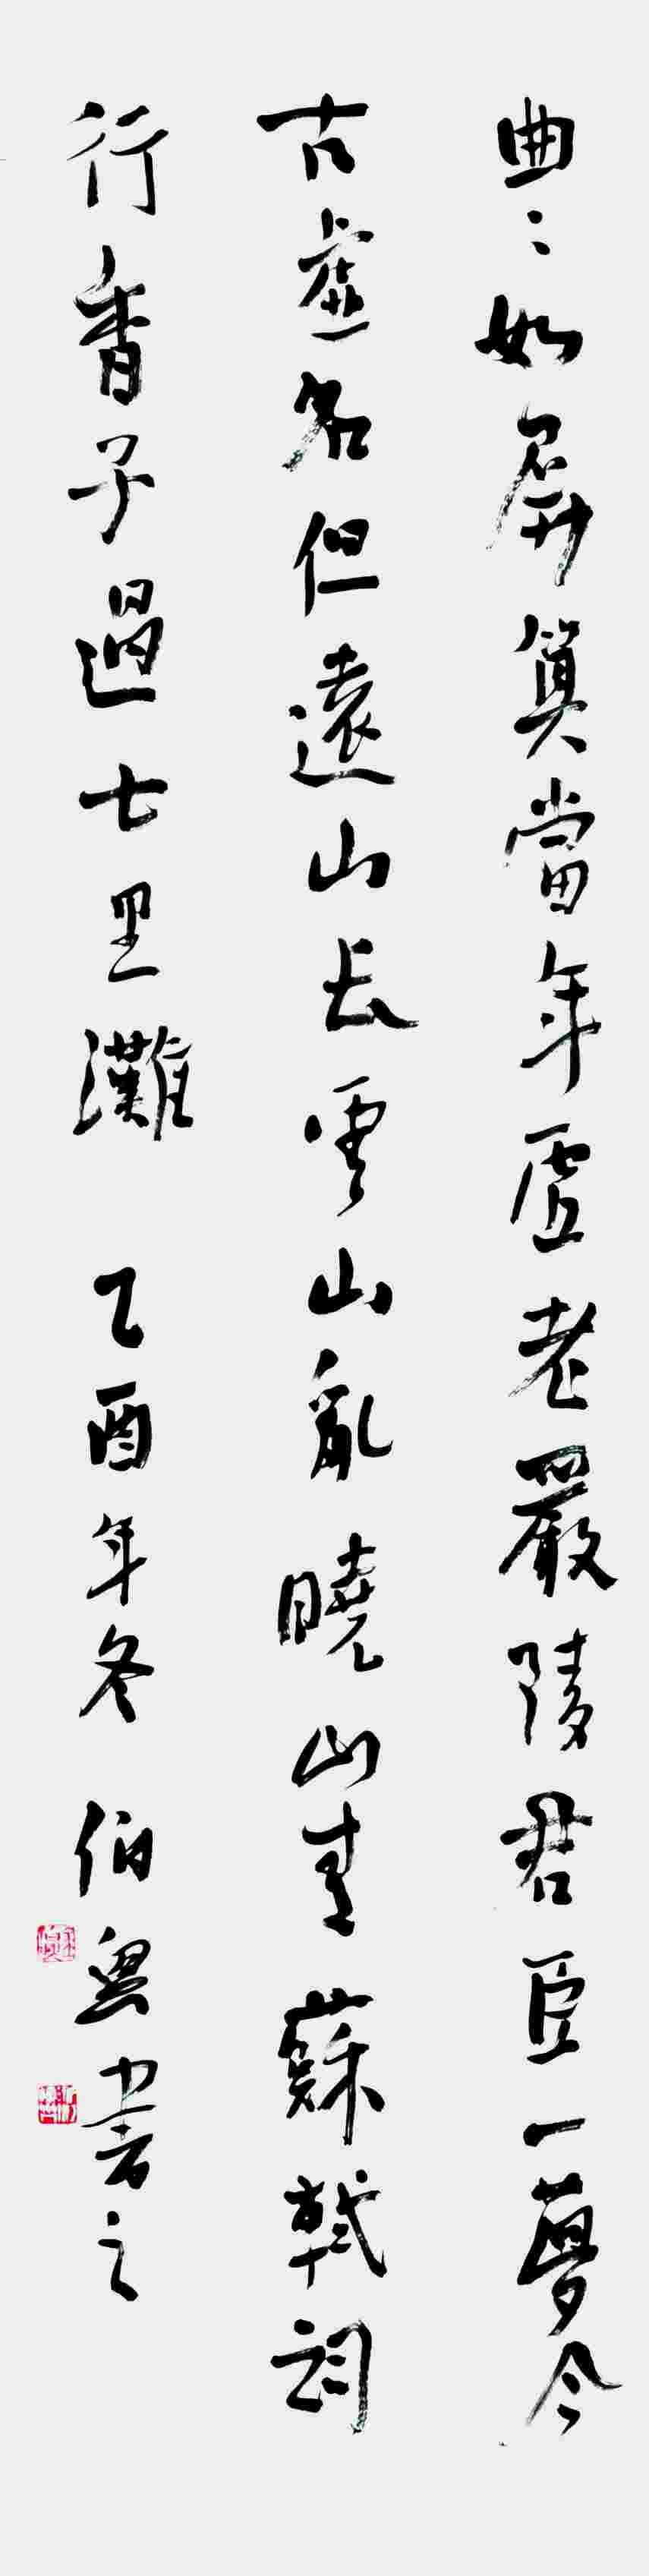 曲〻如屏算當年虛老嚴陵君臣一夢今
古虛名但遠山長雲山亂曉山青蘇軾詞
行香子過七里灘 乙酉年冬 伯 書之